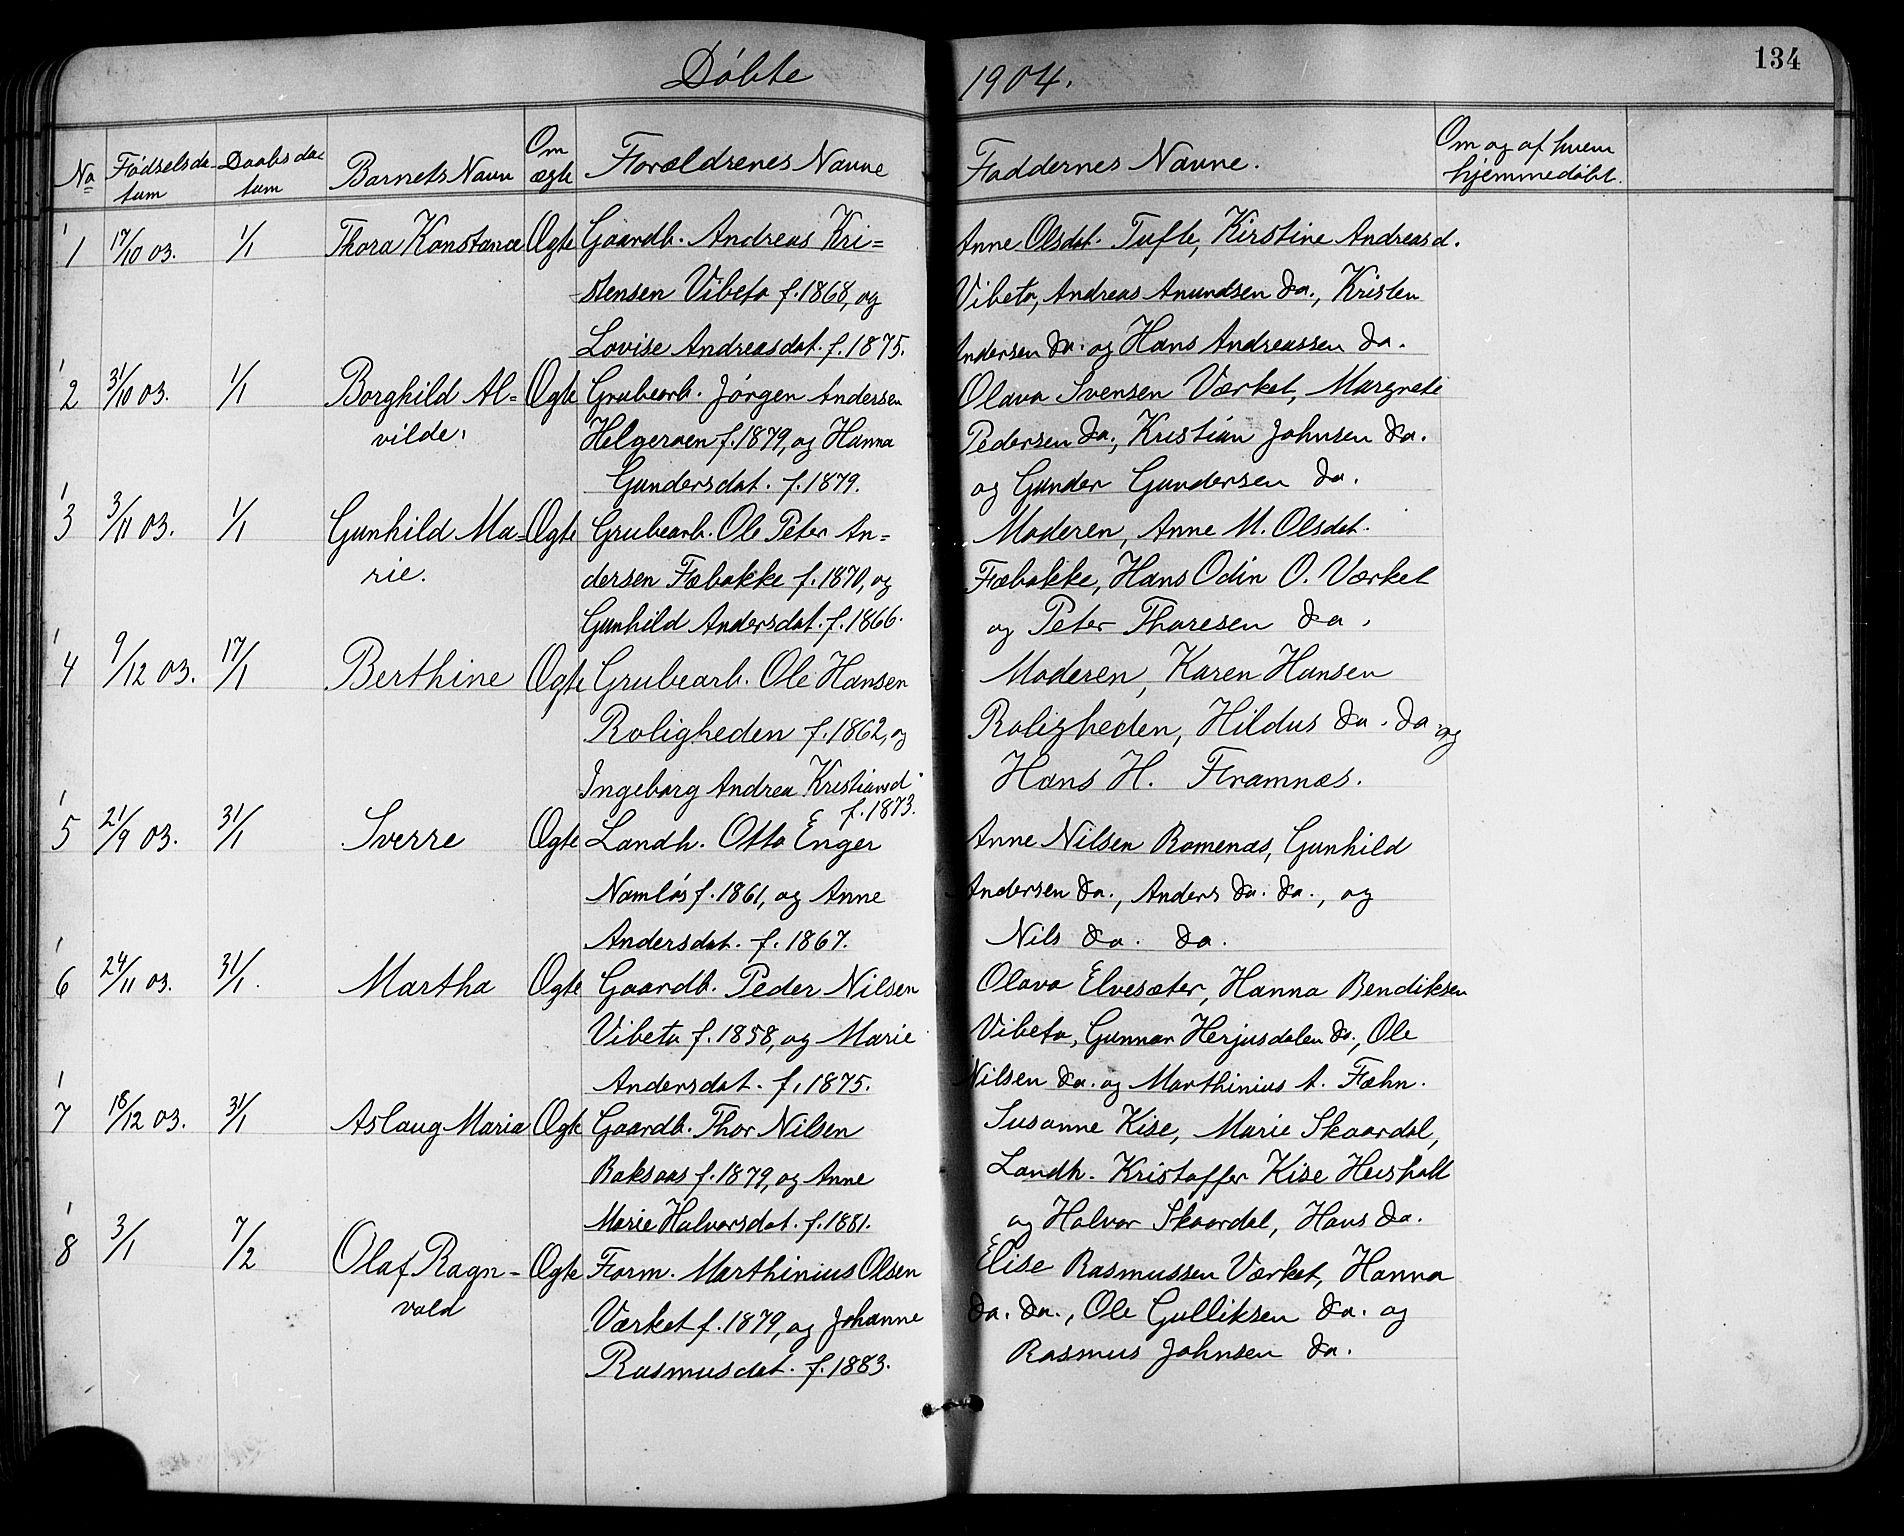 134
Døbte 1904.
No Fødselsda- Daabsda- Barnets Navn Om Forældrenes Navne Faddernes Navne. Om og af hvem
tum tum ægte hjemmedøbt.
1 17/10 03. 1/1 Thora Konstance Ægte Gaardb. Andreas Kri= Anne Olsdat. Tufte, Kirstine Andreasd.
stensen Vibeto f. 1868, og Vibeto, Andreas Anundsen do., Kristen
Lovise Andreasdat. f. 1875. Andersen do. og Hans Andreassen do.
2 31/10 03. 1/1 Borghild Al- Ægte Grubearb. Jørgen Andersen Olava Svensen Værket, Margrete
vilde. Helgeroen f. 1879, og Hanna Pedersen do., Kristian Johnsen do.
Gundersdat. f. 1879. og Gunder Gundersen do.
3 3/11 03. 1/1 Gunhild Ma- Ægte Grubearb. Ole Peter An= Moderen, Anne M. Olsdat.
rie. dersen Fæbakke f. 1870, og Fæbakke, Hans Odin O. Værket
Gunhild Andersdat. f. 1866. og Peter Thoresen do.
4 9/12 03. 17/1 Berthine Ægte Grubearb. Ole Hansen Moderen, Karen Hansen
Roligheden f. 1862, og Roligheden, Hildus do. do. og
Ingeborg Andrea Kristiansd. Hans H. Framnæs.
f. 1873.
5 21/9 03. 31/1 Sverre Ægte Landh. Otto Enger Anne Nilsen Romenæs, Gunhild
Namløs f. 1861, og Anne Andersen do., Anders do. do., og
Andersdat. f. 1867. Nils do. do.
6 24/11 03. 31/1. Martha Ægte Gaardb. Peder Nilsen Olava Elvesæter, Hanna Bendiksen
Vibeto f. 1858, og Marie Vibeto, Gunnar Herjusdalen do., Ole
Andersdat. f. 1875. Nilsen do. og Marthinius A. Fæhn.
7 18/12 03. 31/1 Aslaug Maria Ægte Gaardb. Thor Nilsen Susanne Kise, Marie Skaardal,
Baksaas f. 1879, og Anne Landh. Kristoffer Kise
Marie Halvorsdat. f. 1881. og Halvor Skaardal, Hans do.
8 3/1 7/2 Olaf Ragn- Ægte Form. Marthinius Olsen Elise Rasmussen Værket, Hanna
vald Værket f. 1879, og Johanne do. do., Ole Gulliksen do. og
Rasmusdat. f. 1883. Rasmus Johnsen do.